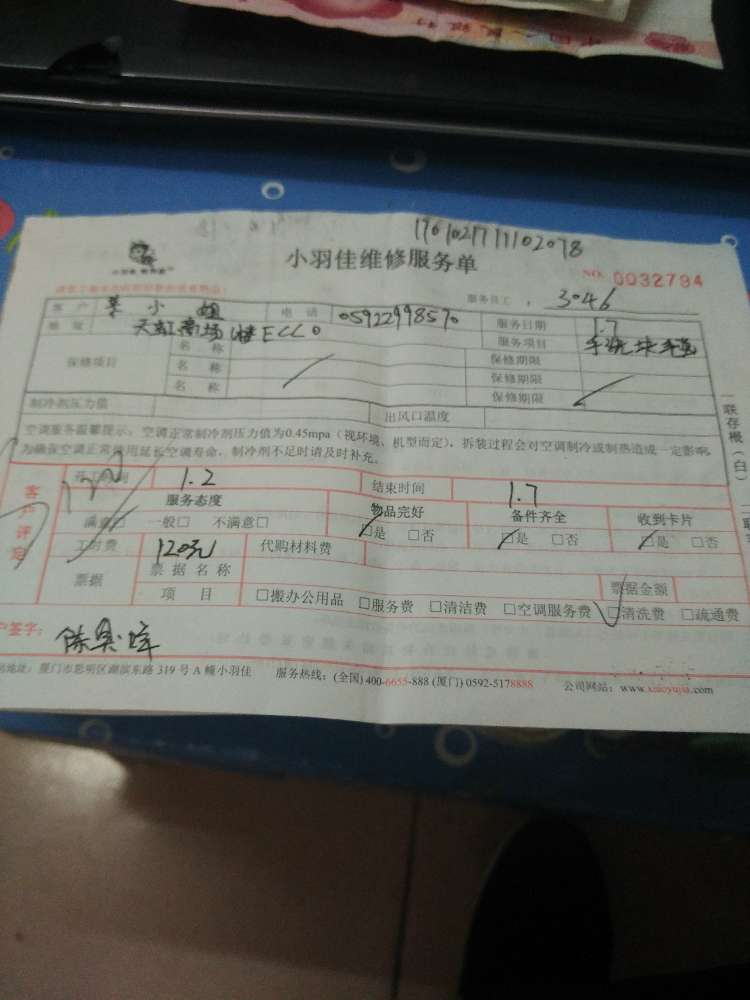 17010217111102078
小羽佳维修服务单
NO. 0032794
服务员工： 3046
客户 小姐 电话 05922998570 服务日期 1.7
地址 天虹商场 1楼ECCO 服务项目
保修项目 名称 保修期限
名称 保修期限
名称 保修期限
制冷剂压力值 出风口温度
空调服务温馨提示：空调正常制冷剂压力值为0.45mpa（视环境、机型而定），拆装过程会对空调制冷或制热造成一定影响，
为确保空调正常使用延长空调寿命，制冷剂不足时请及时补充。
开工时间 1.2 结束时间 1.7
客户评定
服务态度 物品完好 备件齐全 收到卡片
满意□ 一般□ 不满意□ □是 □否 □是 □否 □是 □否
工时费 120元 代购材料费
票据 票据名称 票据金额
项目 □搬办公用品 □服务费 □清洁费 □空调服务费 □清洗费 □疏通费
户签字：
地址：厦门市思明区湖滨东路 319 号 A 幢小羽佳 服务热线：(全国) 400-6655-888 (厦门) 0592-5178888 公司网站：www.xiaoyujia.com
一联存根（白）